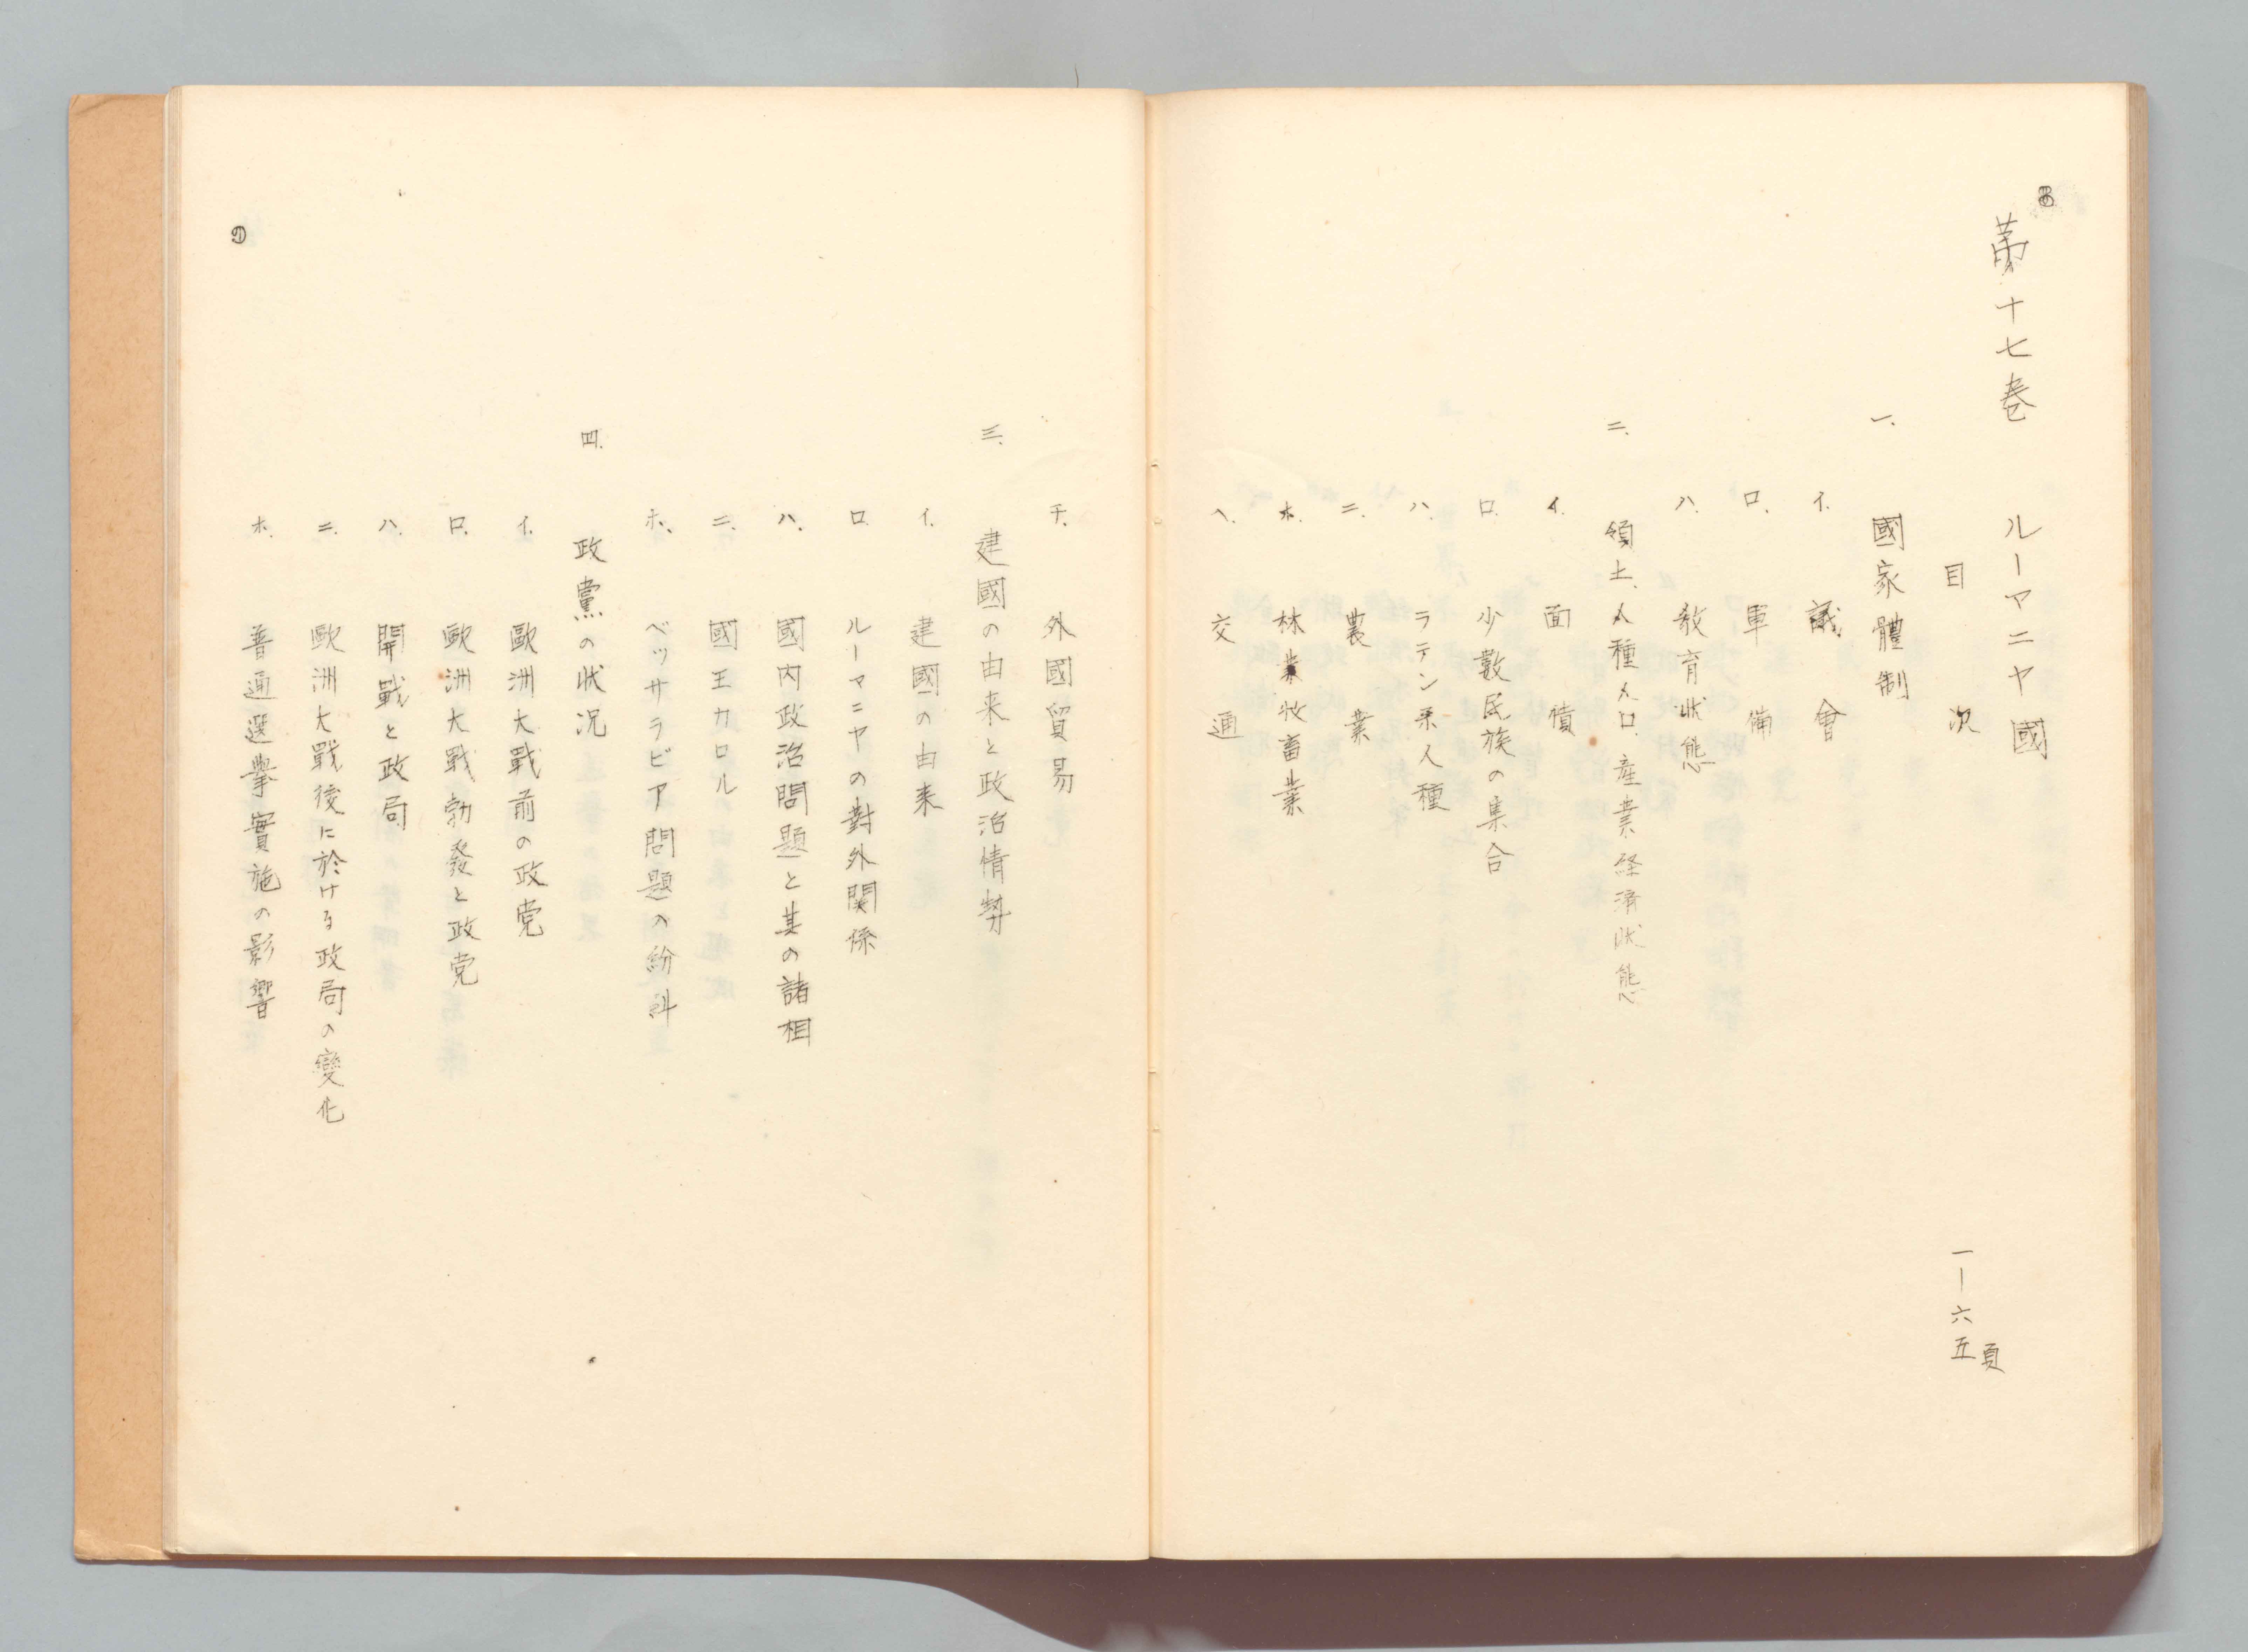 第十七巻　ルーマニヤ國
目次　一―六五頁
一、國家體制
イ、議會
ロ、軍備
ハ、教育状態
二、領土、人種人口、産業経済状態
イ、面積
ロ、少數民族の集合
ハ、ラテン系人種
ニ、農業
ホ、林業牧畜業
ヘ、交通
チ、外國貿易
三、建國の由来と政治情勢
イ、建國の由来
ロ、ルーマニヤの對外関係
ハ、國内政治問題と其の諸相
ニ、國王カロル
ホ、ベッサラビア問題の紛糾
四、政黨の状況
イ、歐洲大戰前の政党
ロ、歐洲大戰勃發と政党
ハ、開戰と政局
ニ、歐洲大戰後に於ける政局の變化
ホ、普通選擧實施の影響